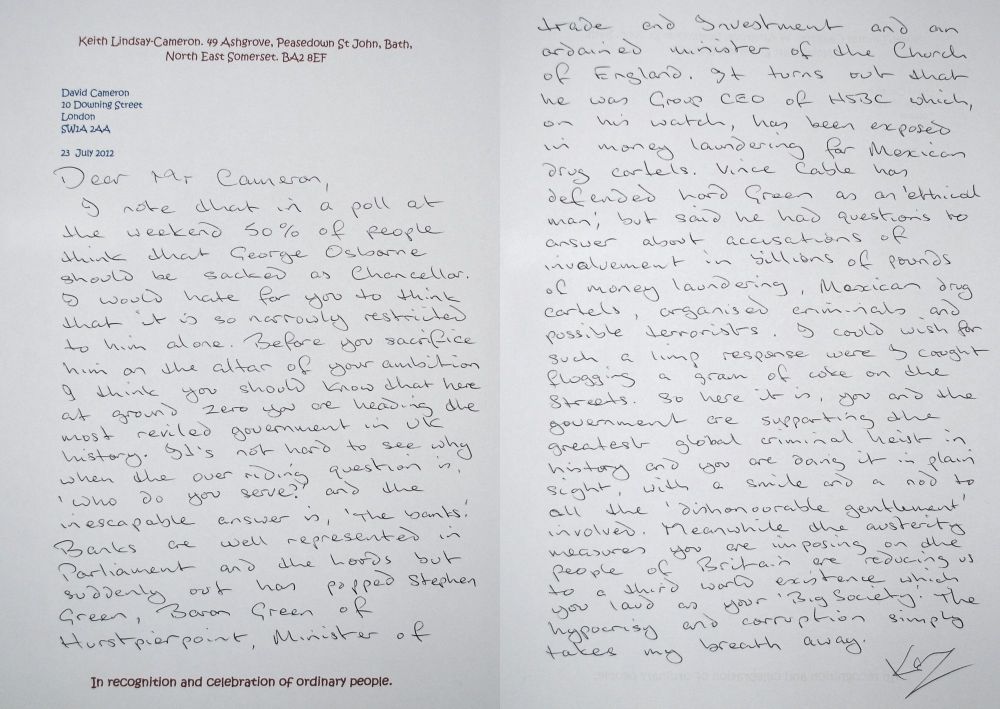 Keith Lindsay-Cameron. 49 Ashgrove, Peasedown St John, Bath,
North East Somerset. BA2 8EF
David Cameron
10 Downing Street
London
SW1A 2AA
23 July 2012
Dear Mr Cameron,
I note that in a poll at
the weekend 50% of people
think that George Osborne
should be sacked as Chancellor.
I would hate for you to think
that it is so narrowly restricted
to him alone. Before you sacrifice
him on the altar of your ambition
I think you should know that here
at ground zero you are heading the
most reviled government in UK
history. It's not hard to see why
when the over riding question is,
'who do you serve?' and the
inescapable answer is, 'The banks.'
Banks are well represented in
Parliament and the Lords but
suddenly out has popped Stephen
Green, Baron Green of
Hurstpierpoint, Minister of
In recognition and celebration of ordinary people.
trade and Investment and an
ordained minister of the Church
of England. It turns out that
he was Group CEO of HSBC which,
on his watch, has been exposed
in money laundering for Mexican
drug cartels. Vince Cable has
defended Lord Green as an 'ethical
man', but said he had questions to
answer about accusations of
involvement in billions of pounds
of money laundering, Mexican drug
cartels, organised criminals and
possible terrorists. I could wish for
such a limp response were I caught
flogging a gram of coke on the
streets. So here it is, you and the
government are supporting the
greatest global criminal heist in
history and you are doing it in plain
sight, with a smile and a nod to
all the 'dishonourable gentlement'
involved. Meanwhile the austerity
measures you are imposing on the
people of Britain are reducing us
to a third world existence which
you laud as your 'Big Society'. The
hypocrisy and corruption simply
takes my breath away.
KOZ